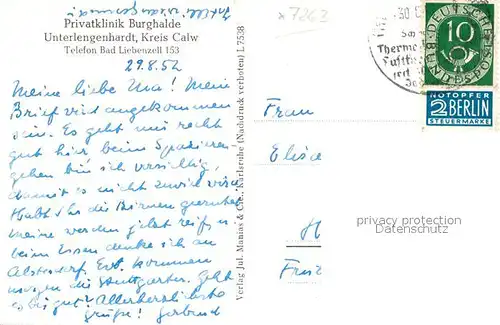 Privatklinik Burghalde
Unterlengenhardt, Kreis Calw
Telefon Bad Liebenzell 153
29.8.52
Meine liebe Ma! Mein
Brief wird angekommen
sein. Es geht mir recht
gut hier beim Spazieren-
gehen bin ich vorsichtig,
damit es nicht zuviel wird
Habt Ihr die Birnen geerntet
meine werden jetzt reif u.
beim Essen denke ich an
Evt. kommen
morgen die Stuttgarter. Geht
es Dir gut? Allerherzlichste
Grüße! Gertrud
Verlag Jul. Manias & Cie., Karlsruhe (Nachdruck verboten) L 7538
x7263
Frau
Elise
H
privacy protection
Datenschutz
30.
Therme
Luftku
DEUTSCHE
BUNDESPOST
10
NOTOPFER
2 BERLIN
STEUERMARKE